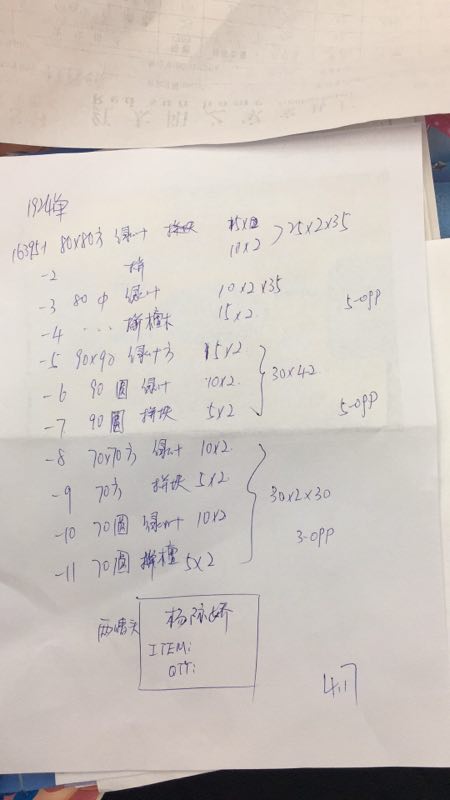 Red sun home
红太阳之家
1924单
163951 80x80方 绿叶 拼块 15x2
10x2 > 25x2x35
-2 拼
-3 80中 绿叶 10x2x35
-4 ... 拼檀木 15x2 5-opp
-5 90x90 绿叶方 15x2
-6 90圆 绿叶 10x2 30x42
-7 90圓 拼块 5x2 5-opp
-8 70x70方 绿叶 10x2
-9 70方 拼块 5x2 30x2x30
-10 70圆 绿叶 10x2 3-opp
-11 70圆 拼檀 5x2
两唛头
杨 娇
ITEM:
QTY:
4.17